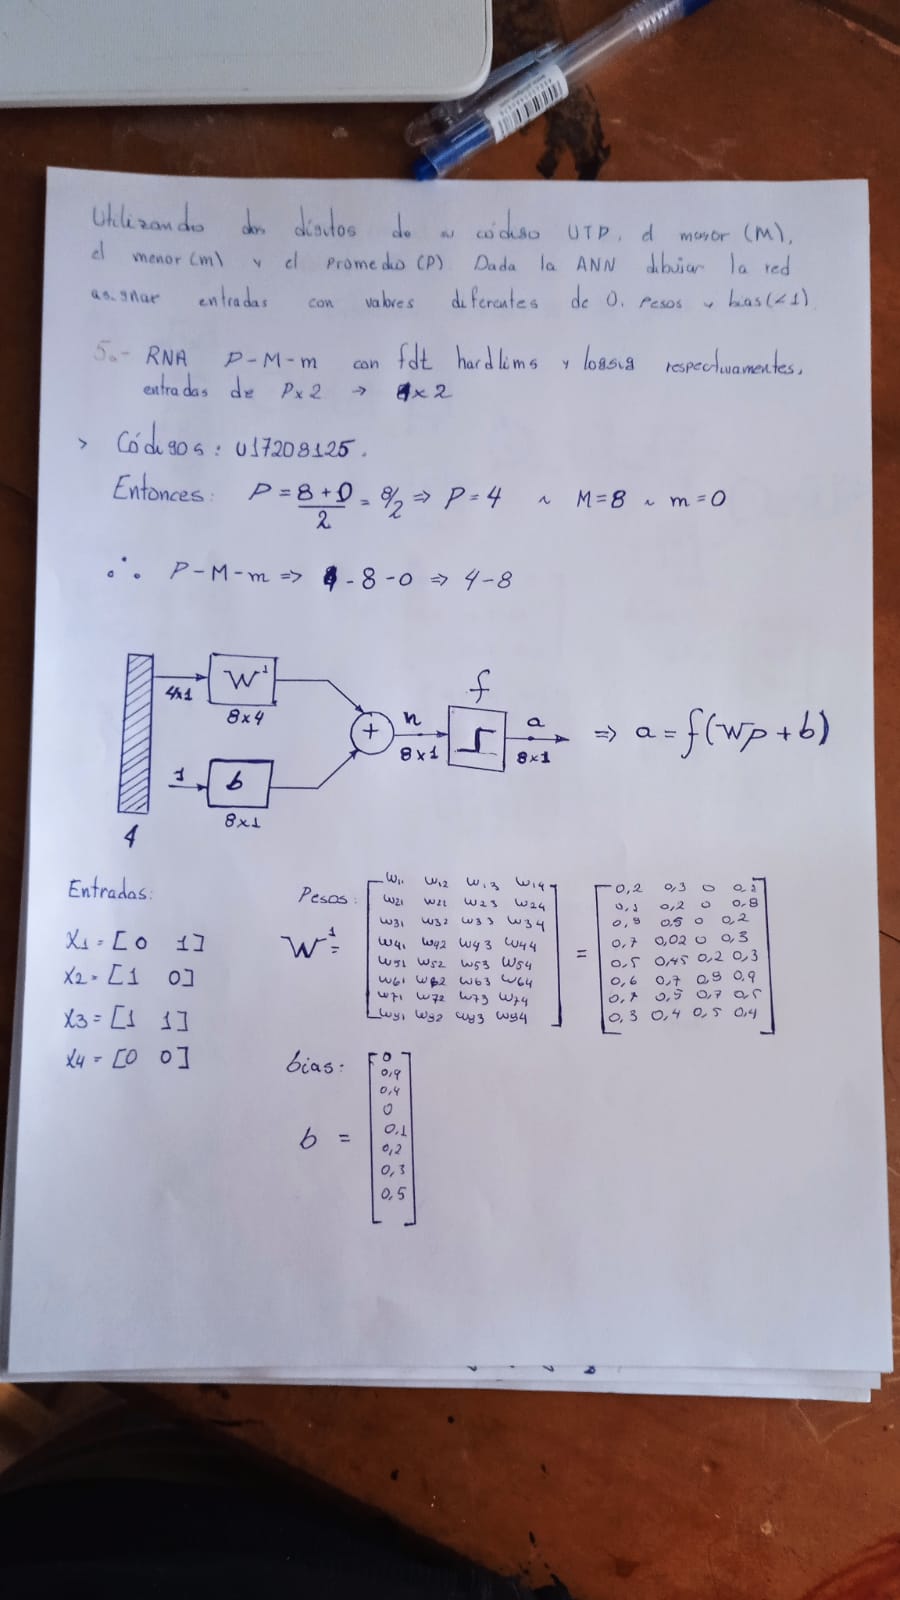 Utilizando dos dígitos de su código UTP, el mayor (M),
el menor (m) y el promedio (P). Dada la ANN dibujar la red
asignar entradas con valores diferentes de 0. Pesos y bias (<1)
5.- RNA P-M-m con fdt hardlims y logsig respectivamentes,
entradas de Px2 → 4x2
> Códigos: U17208125.
Entonces: P = 8+0 / 2 = 8/2 ⇒ P=4 ~ M=8 ~ m=0
∴ P-M-m ⇒ 4-8-0 ⇒ 4-8
f
W¹
4x1
8x4
+
n
8x1
a
8x1
⇒ a = f(Wp+b)
1
b
8x1
4
Entradas:
X1 = [0 1]
X2 = [1 0]
X3 = [1 1]
X4 = [0 0]
Pesos:
W¹ =
w11 w12 w13 w14
w21 w22 w23 w24
w31 w32 w33 w34
w41 w42 w43 w44
w51 w52 w53 w54
w61 w62 w63 w64
w71 w72 w73 w74
w81 w82 w83 w84
=
0,2 0,3 0
0,2 0 0,8
0,5 0 0,2
0,7 0,02 0 0,3
0,5 0,45 0,2 0,3
0,6 0,7 0,8 0,9
0,7
0,3 0,4 0,5 0,4
bias:
b =
0
0,9
0,4
0
0,1
0,2
0,3
0,5